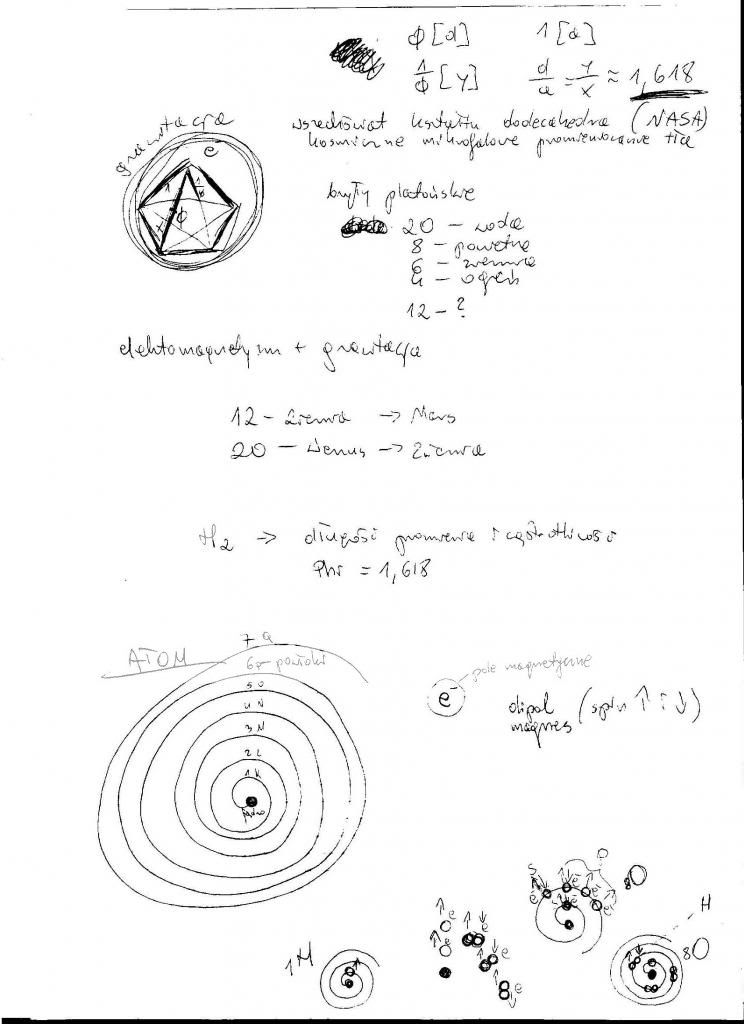 ϕ [d] 1 [a]
1/ϕ [y] d/a = y/x ≈ 1,618
grawitacja
wszechświat kształtu dodecahedra (NASA)
kosmiczne mikrofalowe promieniowanie tła
e
1
1/ϕ
x
ϕ
bryły platońskie
20 – woda
8 – powietrze
6 – ziemia
4 – ogień
12 – ?
elektomagnetyzm + grawitacja
12 – Ziemia → Mars
20 – Wenus → Ziemia
H2 → długość promienia i częstotliwości
Phi = 1,618
ATOM
7 Q
6 P powłoki
5 O
4 N
3 M
2 L
1 K
jądro
e⁻
pole magnetyczne
dipol (spin ↑ i ↓)
magnes
S
P
8O
e
e
e
e
↑ e
↑ e
↓ e
↓ e
↓ e
1H
H
8O